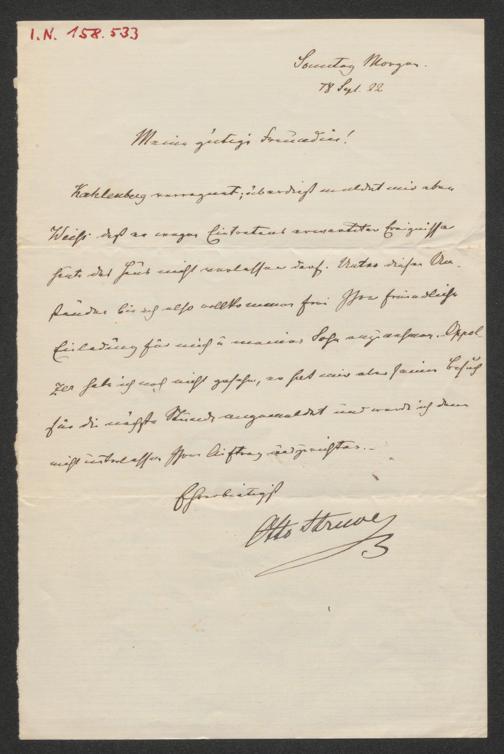 I.N. 158.533
Sonntag Morgen.
18 Sept. 82
Meine gütige Freundin!
Kahlenberg verregnet; überdieß meldet mir eben
Weiß daß er wegen Eintretens erwarteter Ereignisse
heute das Haus nicht verlassen darf. Unter diesen Um-
ständen bin ich also vollkommen frei Ihre freundliche
Einladung für mich u meinen Sohn anzunehmen. Oppol
zer habe ich noch nicht gesehen, er hat mir aber seinen Besuch
für die nächste Stunde angemeldet und werde ich dann
nicht unterlassen Ihren Auftrag auszurichten.–
Ehrerbietigst
Otto Struve